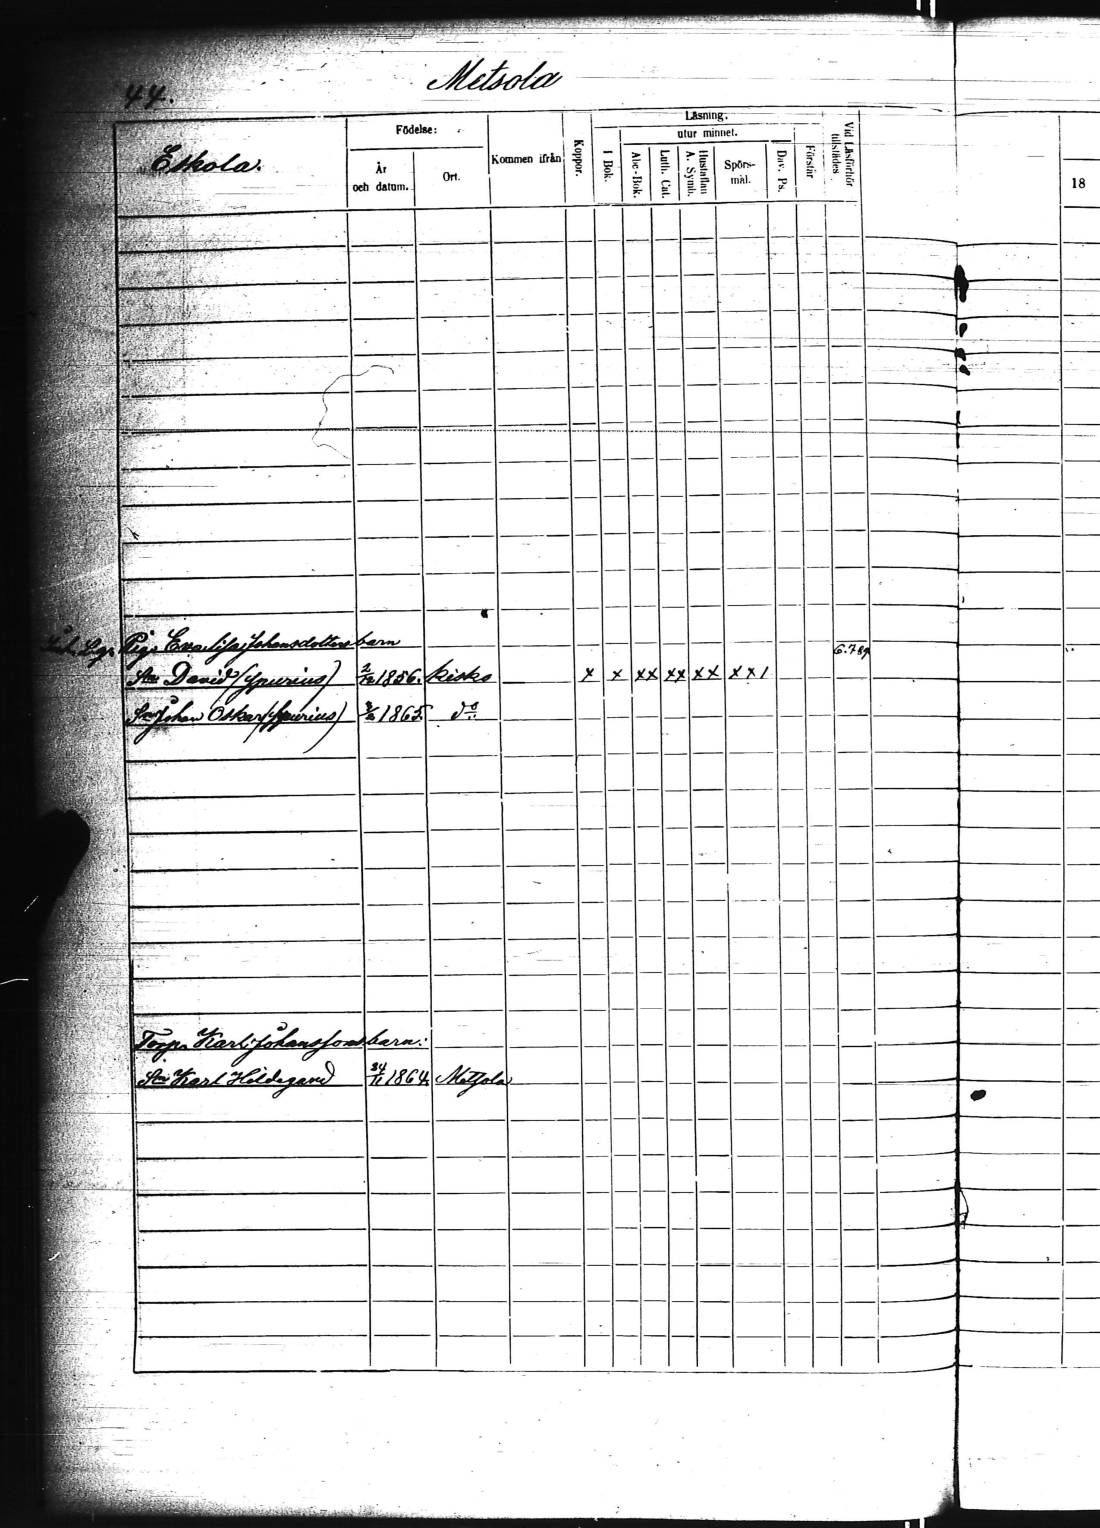 44.
Metsola
Eskola.
Födelse:
År och datum.
Ort.
Kommen ifrån
Koppor.
Läsning.
utur minnet.
I Bok.
Abc-Bok.
Luth. Cat.
Hustaflan A. Symb.
Spörs-mål.
Dav. Ps.
Förstår
Vid Läsförhör tillstädes
18
Pig. Eva Lisa Johansdotters barn
6.7.8.9
Son David (spurius) 1856. Kisko x x xx xx xx xx1
Son Johan Oskar (spurius) 1865. d:o
Torp. Karl Johanssons barn:
Son Karl Hildegard 24/11 1864. Metsola